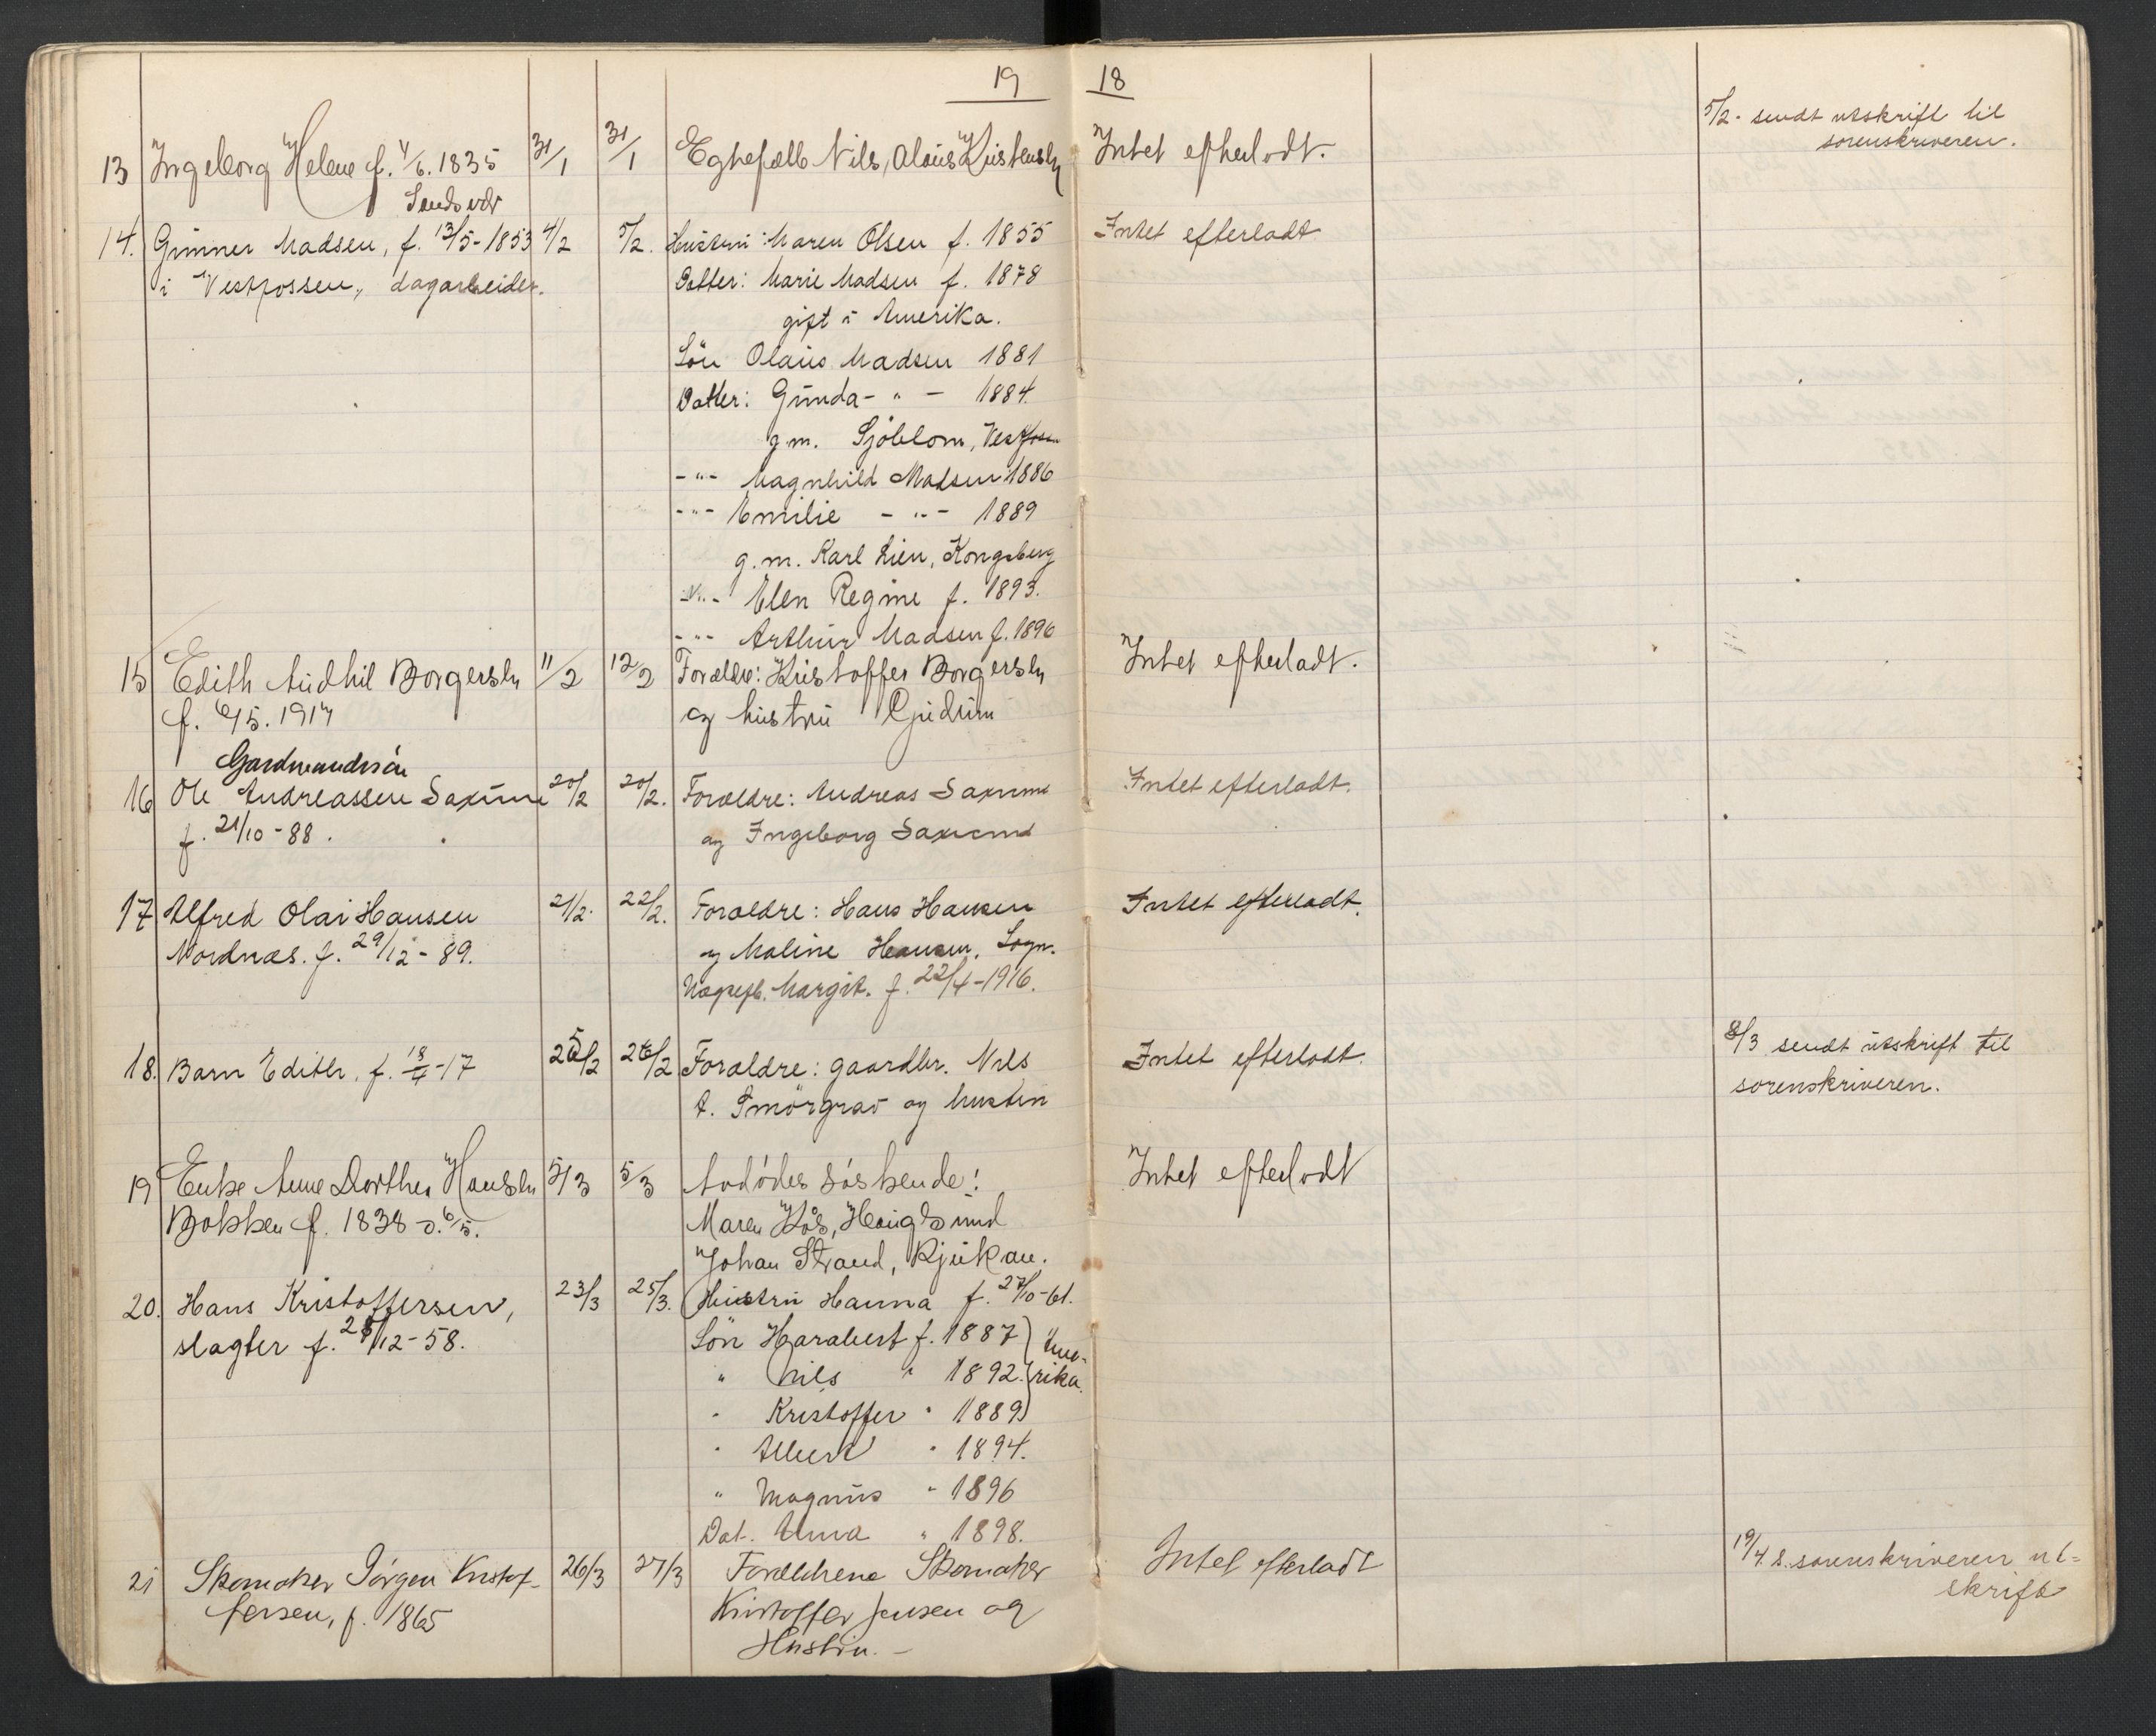 19 18
5/2. sendt utskrift til
sorenskriveren.
13 Ingeborg Helene f. 4/6. 1835 31/1 31/1 Egtefælle Nils Intet efterladt.
14. Gunner Madsen, f. 13/5-1853 4/2 5/2. Hustru: Maren Olsen f. 1855 Intet efterladt
i Vestfossen, dagarbeider. Datter: Marie Madsen f. 1878
gift i Amerika.
Søn Olaus Madsen 1881
Datter: Gunda - " - 1884.
g.m. Sjöblom, Vestfossen
- " - Magnhild Madsen 1886
- " - Emilie - " - 1889
g.m. Karl Lien, Kongsberg
- " - Elen Regine f. 1893.
- " - Arthur Madsen f. 1896
15 Edith Audhil Borgersen 11/2 12/2 Forældre: Kristoffer Borgersen Intet efterladt.
f. 6/5. 1917 og hustru Gudrun
Gardmandssön
16 Ole Andreassen Saxumd 20/2 20/2. Forældre: Andreas Saxumd Intet efterladt.
f. 21/10-88. og Ingeborg Saxumd
17 Alfred Olai Hansen 21/2. 22/2. Forældre: Hans Hansen Intet efterladt.
Nordnæs. f. 29/12-89. og Maline Hansen, Sogn.
Margit. f. 22/4-1916.
18. Barn Edith. f. 18/4-17 25/2 26/2 Forældre: gaardbr. Nils Intet efterladt. 8/3 sendt utskrift til
t. Smörgrav og hustru sorenskriveren.
19 Enke Anne Dorthea Hansen 5/3 5/3 Avdödes söskende! Intet efterladt
Bakken f. 1838 d. 6/5. Maren Kås, Hougsund
Johan Strand, Rjukan.
20. Hans Kristoffersen, 23/3 25/3. Hustru Hanna f. 27/10-61.
slagter f. 25/12-58. Søn Harabert f. 1887 Ame-
" Nils " 1892. rika.
" Kristoffer " 1889
" Albert " 1894.
" Magnus " 1896
Dat. Anna " 1898.
21 Skomaker Jørgen Kristof- 26/3 27/3 Forældrene Skomaker Intet efterladt 19/4 s. sorenskriveren ut=
fersen, f. 1865 Kristoffer Jensen og skrift
Hustru. -